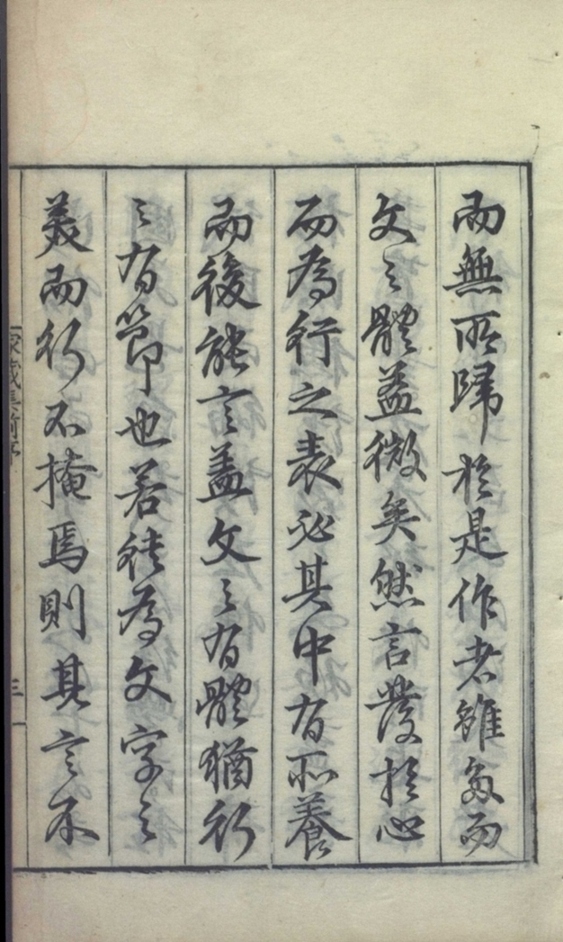 而無所歸於是作者雖多而
文之體蓋微矣然言發於心
而為行之表必其中有所養
而後能言蓋文之有體猶行
之有節也若徒為文字之
美而行不掩焉則其言不
三